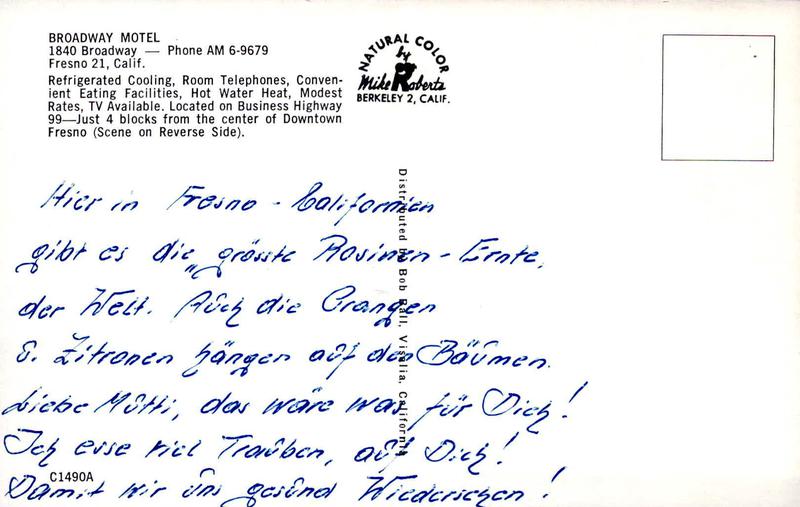 BROADWAY MOTEL
1840 Broadway — Phone AM 6-9679
Fresno 21, Calif.
Refrigerated Cooling, Room Telephones, Conven-
ient Eating Facilities, Hot Water Heat, Modest
Rates, TV Available. Located on Business Highway
99—Just 4 blocks from the center of Downtown
Fresno (Scene on Reverse Side).
NATURAL COLOR
by
Mike Roberts
BERKELEY 2, CALIF.
Distributed by Bob Ball, Visalia, California
Hier in Fresno - Californien
gibt es die „grösste Rosinen-Ernte,
der Welt. Auch die Orangen
u. Zitronen hängen auf den Bäumen.
Liebe Mutti, das wäre was für Dich!
Ich esse viel Trauben, auf Dich!
C1490A
Damit wir uns gesund Wiedersehen!